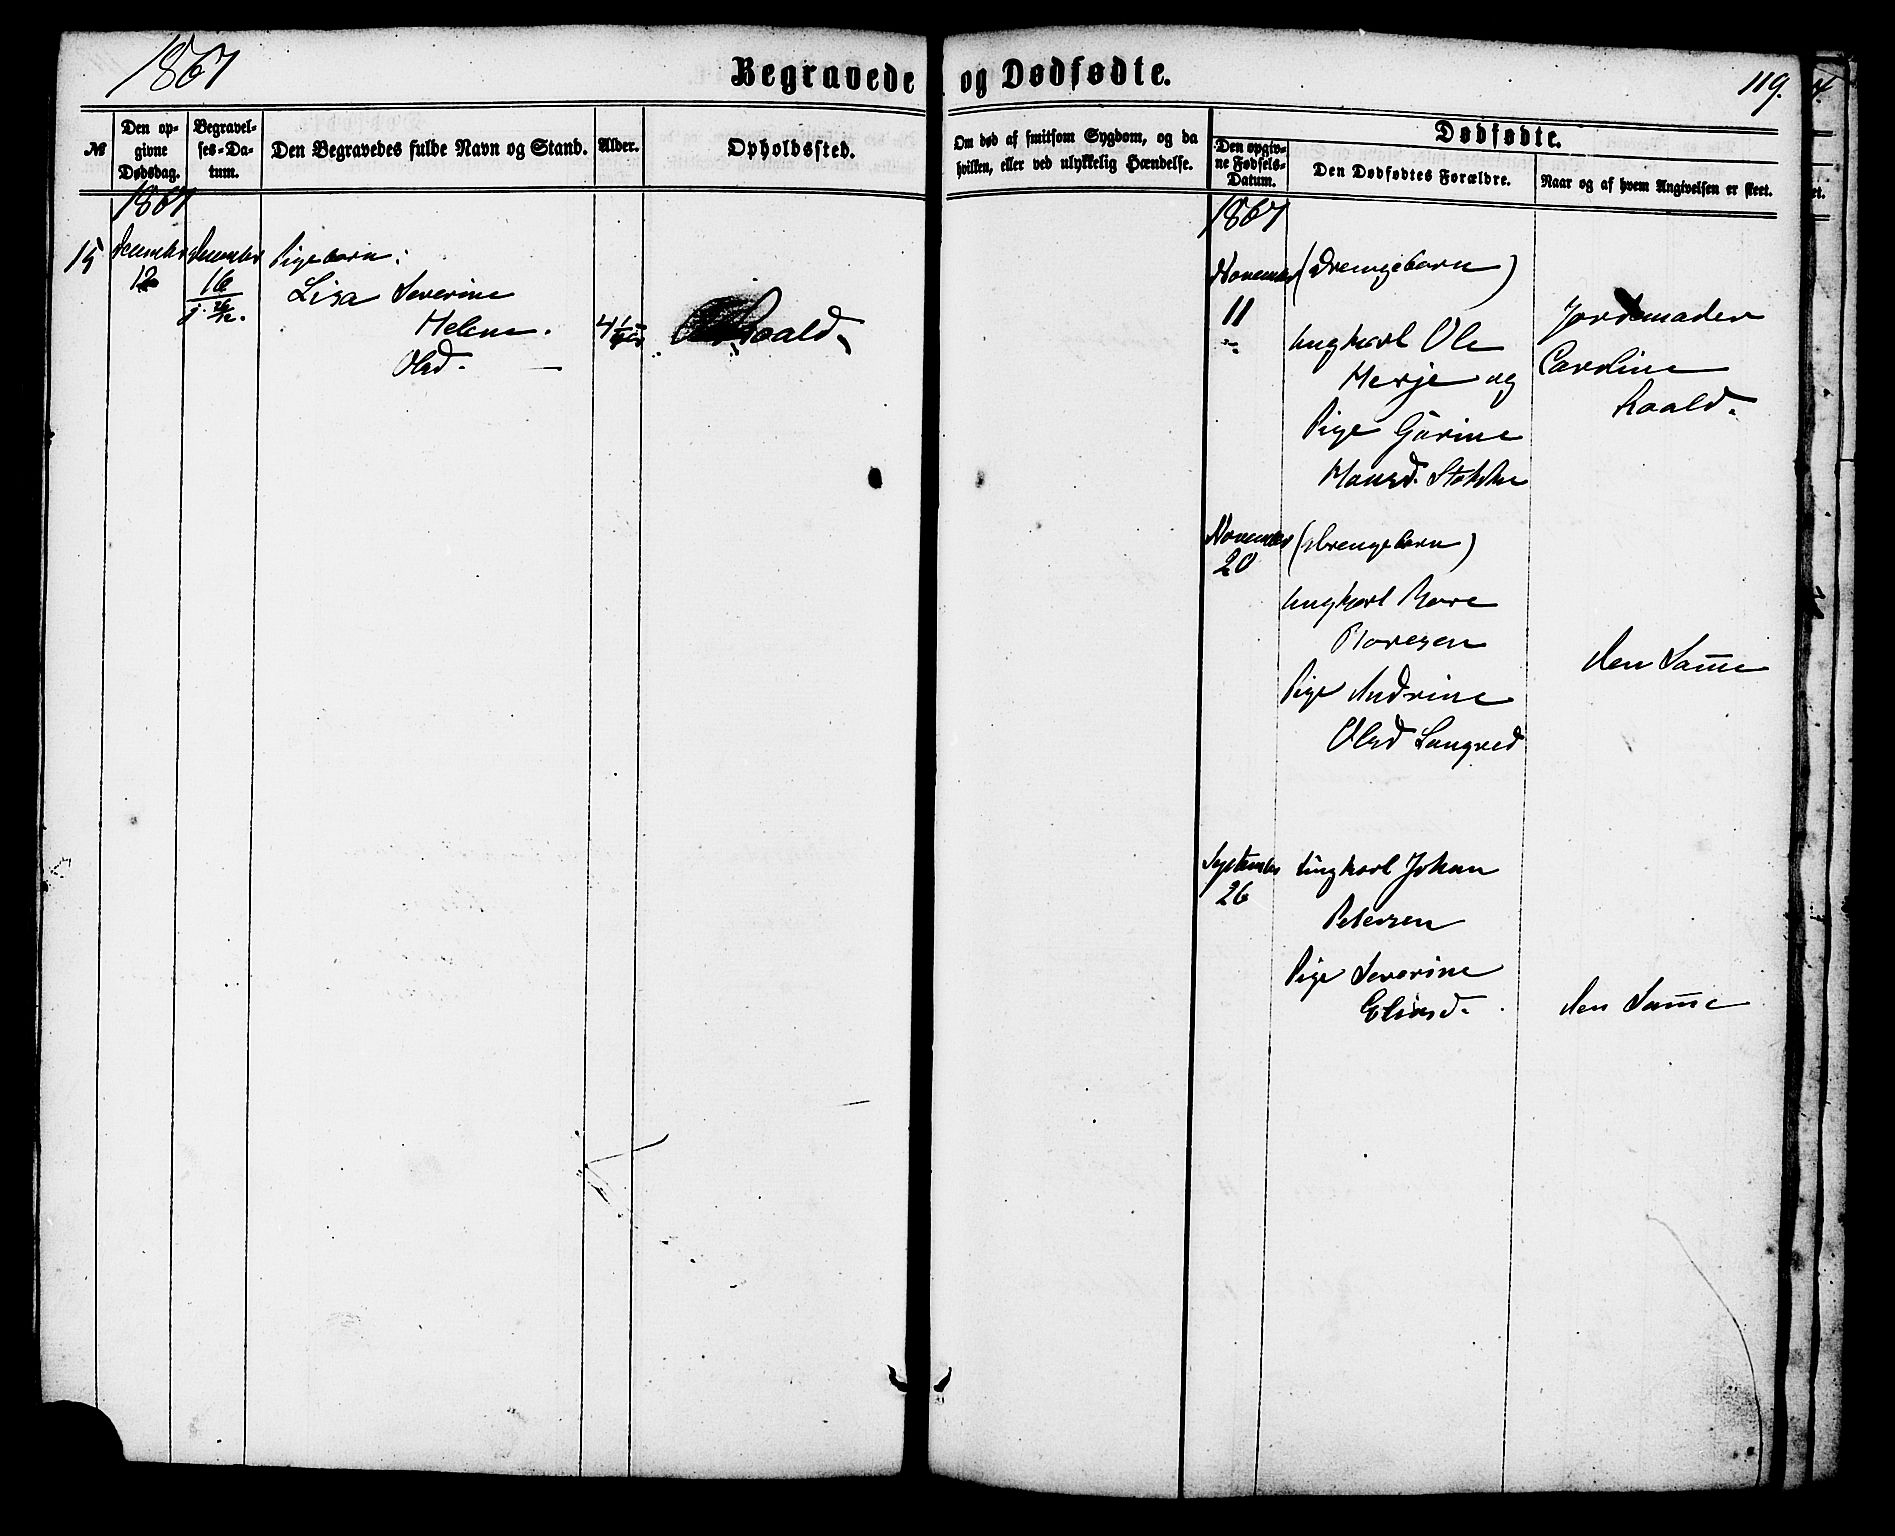 1867
Begravede og Dødfødte.
119.
№
Den op-
givne
Dødsdag.
Begravel-
ses-Da-
tum.
Den Begravedes fulde Navn og Stand.
Alder.
Opholdssted.
Om død af smitsom Sygdom, og da
hvilken, eller ved ulykkelig Hændelse.
Dødfødte.
Den opgiv-
ne Fødsels-
Datum.
Den Dødfødtes Forældre.
Naar og af hvem Angivelsen er skeet.
1867
15
December
12
December
16
Pigebarn:
Lisa Severine
Helene
Olsd.
Roald.
1867
November
11
(Drengebarn)
Ungkarl Ole
Herje og
Pige Gurine
Hansd. Stokke
Jordemoder
Caroline
Roald.
November
20
(Drengebarn)
Ungkarl
Pige Andrine
Olsd
den Samme
September
26
Ungkarl Johan
Petersen
Pige Severine
Eliasd.
den Samme